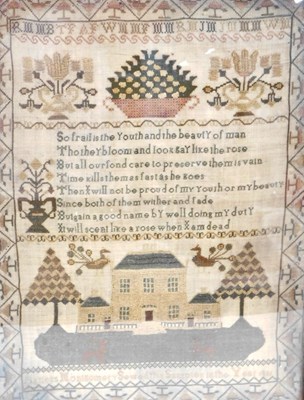 So frail is the Youth and the beauty of man
Tho they bloom and look gay like the rose
But all our fond care to preserve them is vain
Time kills them as fast as he goes
Then I will not be proud of my youth or my beauty
Since both of them wither and fade
But gain a good name by well doing my duty
It will scent like a rose when I am dead